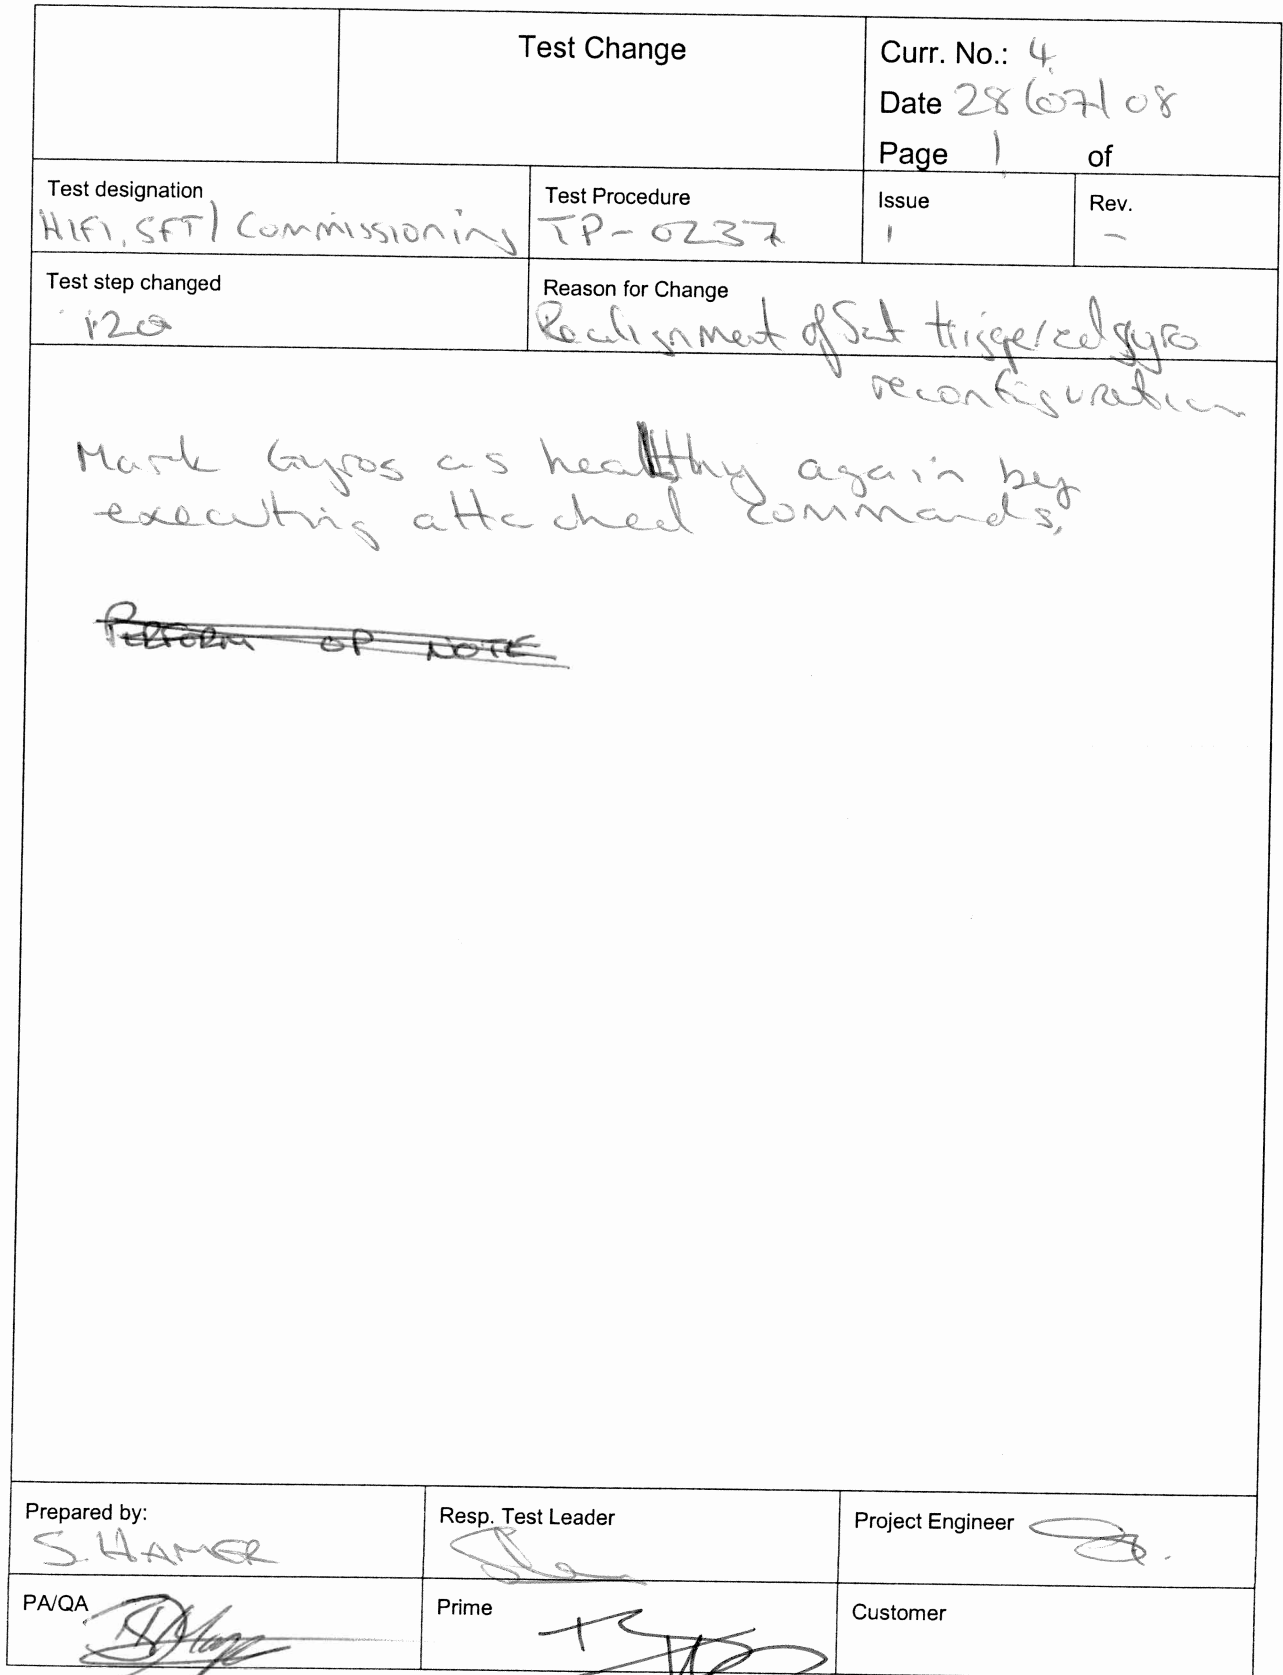 Test Change
Curr. No.: 4
Date 28/07/08
Page 1 of
Test designation
HIFI, SFT/Commissioning
Test Procedure
TP-0237
Issue
1
Rev.
-
Test step changed
120
Reason for Change
Realignment of Sat triggered gyro
reconfiguration
Mark Gyros as healthy again by
executing attached commands.
PERFORM OP NOTE
Prepared by:
S. HAMER
Resp. Test Leader
Project Engineer
PA/QA
Prime
Customer